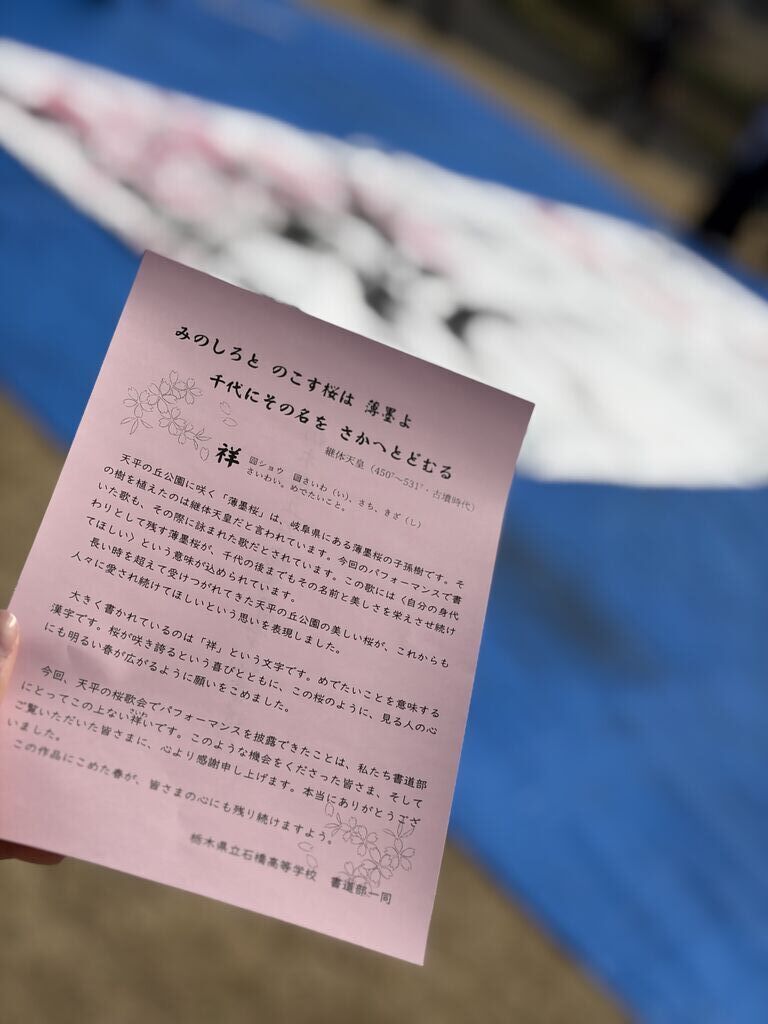 みのしろと のこす桜は 薄墨よ
千代にその名を さかへとどむる
継体天皇（450?～531?・古墳時代）
祥 音ショウ 訓さいわ（い）、さち、きざ（し）
さいわい。めでたいこと。
天平の丘公園に咲く「薄墨桜」は、岐阜県にある薄墨桜の子孫樹です。そ
の樹を植えたのは継体天皇だと言われています。今回のパフォーマンスで書
いた歌も、その際に詠まれた歌だとされています。この歌には〈自分の身代
わりとして残す薄墨桜が、千代の後までもその名前と美しさを栄えさせ続け
てほしい〉という意味が込められています。
長い時を超えて受けつがれてきた天平の丘公園の美しい桜が、これからも
人々に愛され続けてほしいという思いを表現しました。
大きく書かれているのは「祥」という文字です。めでたいことを意味する
漢字です。桜が咲き誇るという喜びとともに、この桜のように、見る人の心
にも明るい春が広がるように願いをこめました。
今回、天平の桜歌会でパフォーマンスを披露できたことは、私たち書道部
にとってこの上ない祥いです。このような機会をくださった皆さま、そして
ご覧いただいた皆さまに、心より感謝申し上げます。本当にありがとうござ
いました。
この作品にこめた春が、皆さまの心にも残り続けますよう。
栃木県立石橋高等学校 書道部一同